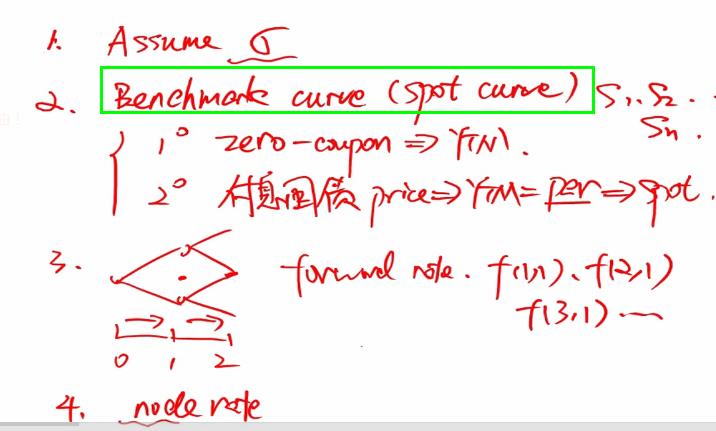 1. Assume σ
2. Benchmark curve (spot curve) S₁. S₂. ..
Sn.
1° zero-coupon ⇒ YTM.
2° 付息国债 price ⇒ YTM = per ⇒ spot.
3. forward rate. f(1,1)、f(2,1)
f(3,1) ...
0 1 2
4. node rate